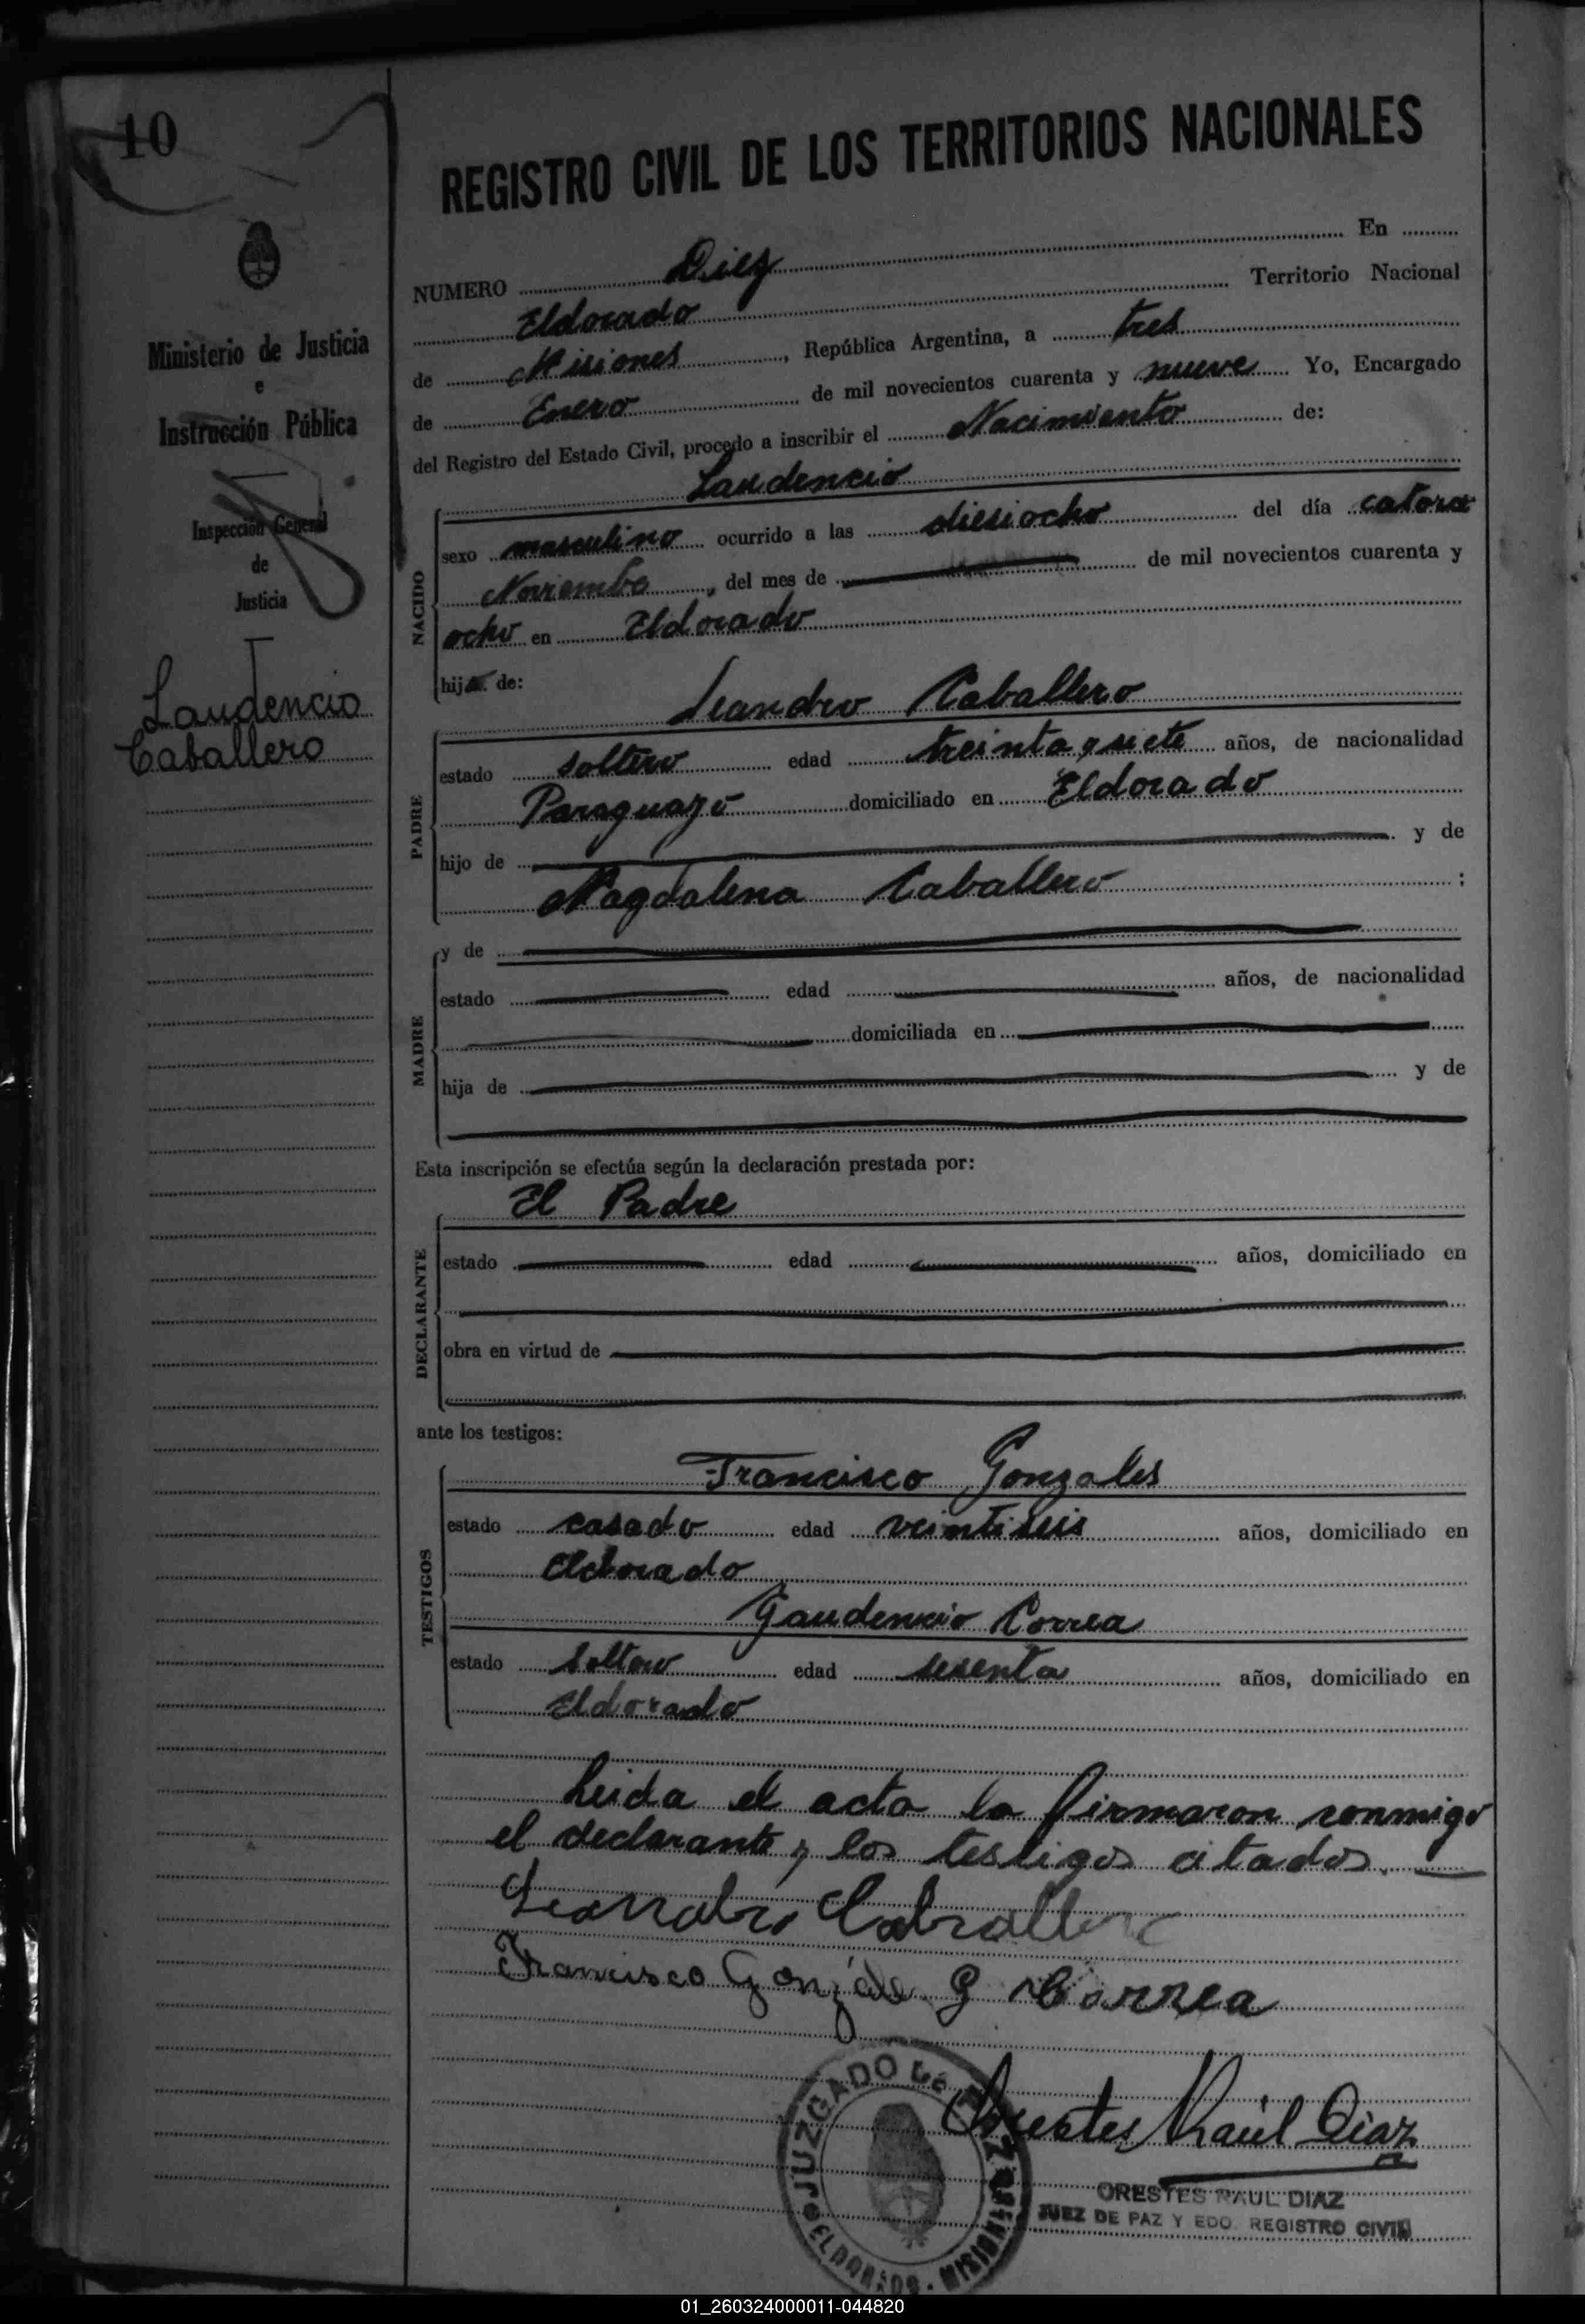 10
Ministerio de Justicia
e
Instrucción Pública
Inspección General
de
Justicia
Laudencio
Caballero
REGISTRO CIVIL DE LOS TERRITORIOS NACIONALES
NUMERO Diez En
Eldorado Territorio Nacional
de Misiones, República Argentina, a tres
de Enero de mil novecientos cuarenta y nueve Yo, Encargado
del Registro del Estado Civil, procedo a inscribir el Nacimiento de:
NACIDO
Laudencio
sexo masculino ocurrido a las diesiocho del día catorce
Noviembre, del mes de de mil novecientos cuarenta y
ocho en Eldorado
hijo de:
PADRE
Leandro Caballero
estado soltero edad treinta y siete años, de nacionalidad
Paraguayo domiciliado en Eldorado
hijo de y de
Magdalena Caballero ;
MADRE
y de
estado edad años, de nacionalidad
domiciliada en
hija de y de
Esta inscripción se efectúa según la declaración prestada por:
DECLARANTE
El Padre
estado edad años, domiciliado en
obra en virtud de
ante los testigos:
TESTIGOS
Francisco Gonzales
estado casado edad veintiseis años, domiciliado en
Eldorado
Gaudencio Correa
estado soltero edad sesenta años, domiciliado en
Eldorado
Leida el acta la firmaron conmigo
el declarante y los testigos citados.
Leandro Caballero
Francisco Gonzále G Correa
JUZGADO DE PAZ
ELDORADO - MISIONES
Orestes Raúl Diaz
ORESTES RAUL DIAZ
JUEZ DE PAZ Y EDO. REGISTRO CIVIL
01_260324000011-044820